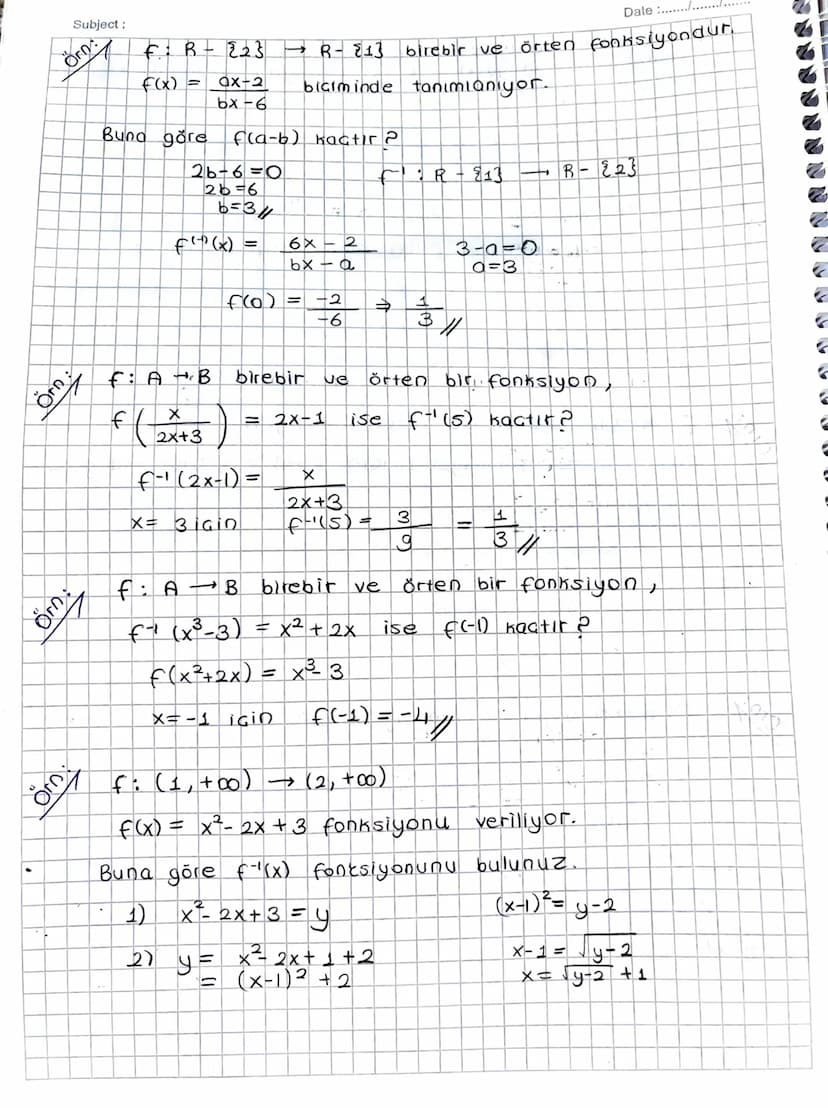 Date :......./......./.......
Subject :
Örn: f : R - {2} → R- {1} birebir ve örten fonksiyondur.
f(x) = ax-2 / bx-6 biciminde tanımlanıyor.
Buna göre f(a-b) kactır?
2b-6=0
f⁻¹ : R - {1} → R- {2}
2b=6
b=3//
f⁽⁻¹⁾(x) = 6x - 2 / bx - a
3-a=0
a=3
f(0) = -2 / -6 ⇒ 1/3 //
Örn: f: A → B birebir ve örten bir fonksiyon,
f ( x / 2x+3 ) = 2x-1 ise f⁻¹(5) kactır?
f⁻¹(2x-1) = x / 2x+3
x= 3 icin f⁻¹(5) = 3/9 = 1/3 //
Örn: f : A → B birebir ve örten bir fonksiyon,
f⁻¹ (x³-3) = x² + 2x ise f(-1) kactır?
f(x²+2x) = x³- 3
x=-1 icin f(-1) = -4//
Örn: f: (1, +∞) → (2, +∞)
f(x) = x²- 2x + 3 fonksiyonu veriliyor.
Buna göre f⁻¹(x) fonksiyonunu bulunuz.
1) x²- 2x+3 = y
(x-1)²= y-2
2) y = x²- 2x+1+2
= (x-1)² +2
x-1 = √y-2
x= √y-2 +1